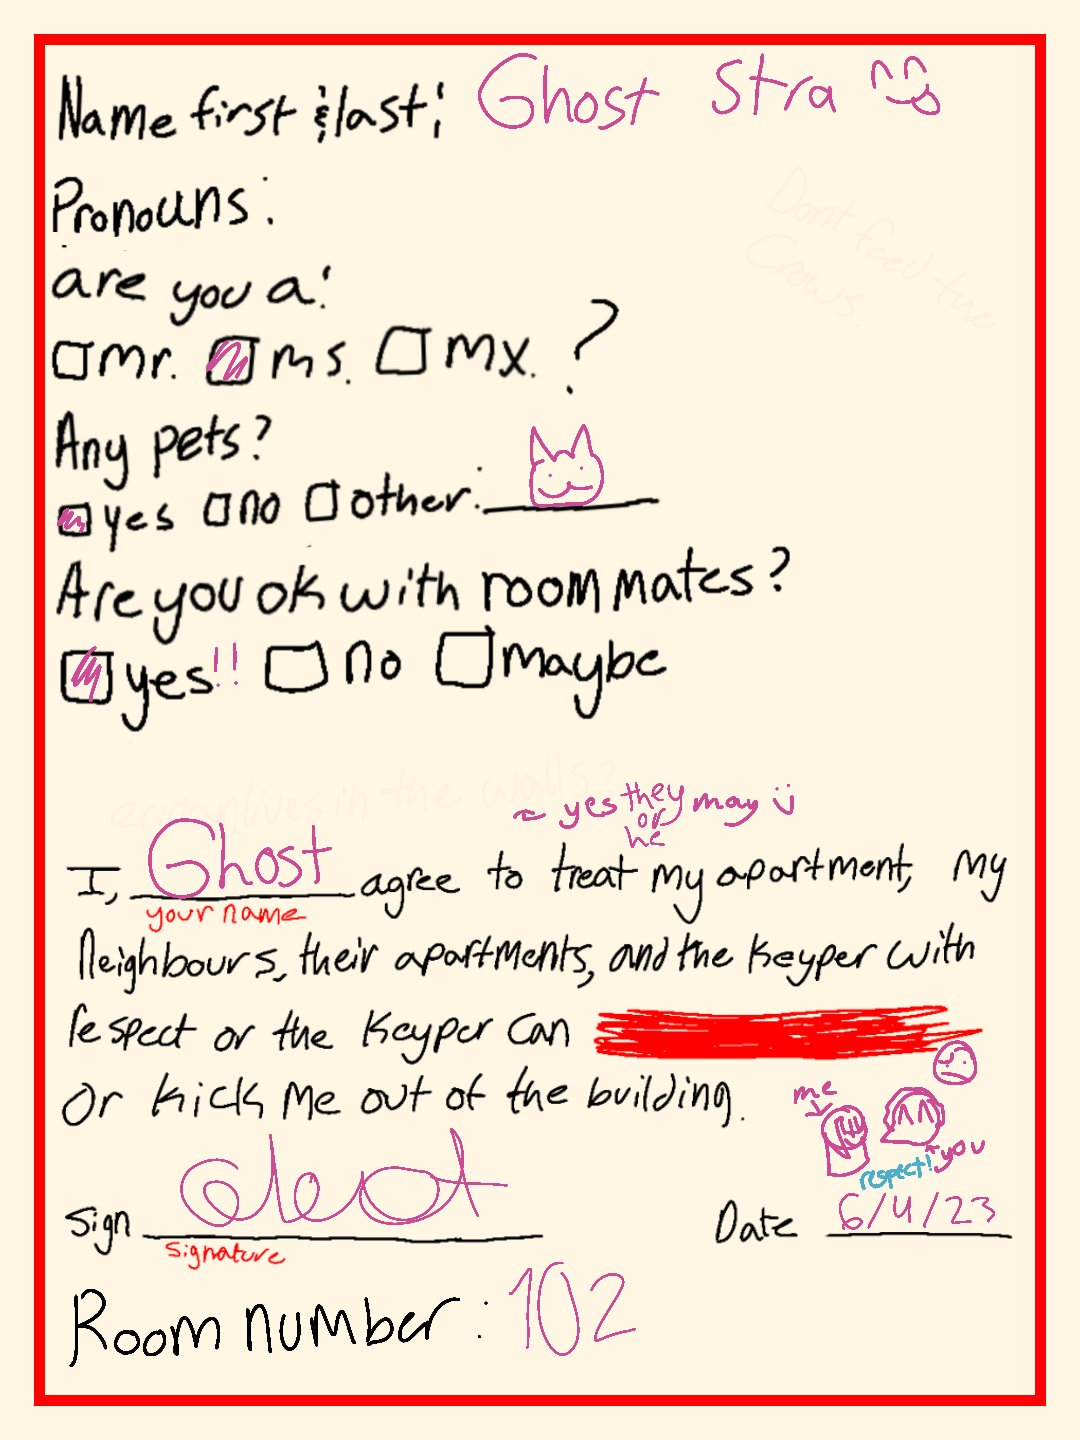 Name first & last: Ghost Stra
Pronouns:
Dont feed the
Crows.
are you a:
mr. ms. mx. ?
Any pets?
yes no other:
Are you ok with roommates?
yes!! no maybe
lives in the walls?
yes they may
or
he
I, Ghost agree to treat my apartment, my
your name
Neighbours, their apartments, and the Keyper with
respect or the Keyper can
Or kick me out of the building.
me
you
respect!
Sign Ghost Date 6/4/23
signature
Room number: 102